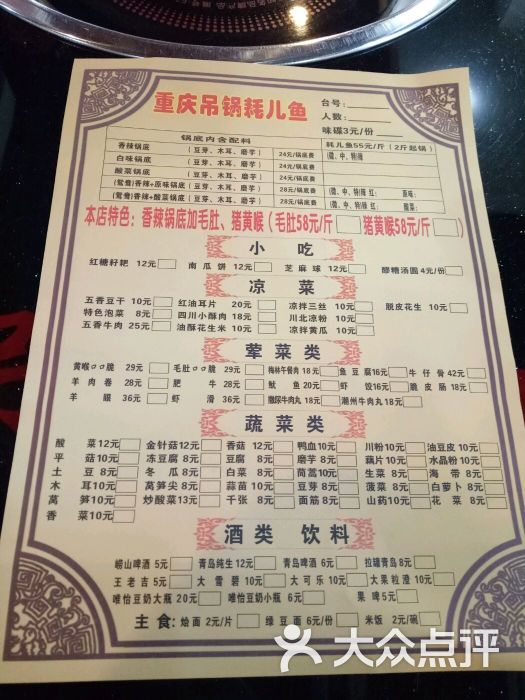 重庆吊锅耗儿鱼
台号:
人数:
味碟3元/份
锅底内含配料
耗儿鱼55元/斤（2斤起锅）
香辣锅底 （豆芽、木耳、磨芋） 24元/锅底费 (微、中、特)辣
白味锅底 （豆芽、木耳、磨芋） 24元/锅底费
酸菜锅底 （豆芽、木耳、磨芋） 24元/锅底费
(鸳鸯)香辣+原味锅底 （豆芽、木耳、磨芋） 28元/锅底费 (微、中、特)辣 红: 原味:
(鸳鸯)香辣+酸菜锅底 （豆芽、木耳、磨芋） 28元/锅底费 (微、中、特)辣 红: 酸菜:
本店特色：香辣锅底加毛肚、猪黄喉（毛肚58元/斤 猪黄喉58元/斤 ）
小吃
红糖籽粑 12元 南瓜饼 12元 芝麻球 12元 醪糟汤圆 4元/份
凉菜
五香豆干 10元 红油耳片 20元 凉拌三丝 10元 脱皮花生 10元
特色泡菜 8元 四川小酥肉 18元 川北凉粉 10元
五香牛肉 25元 油酥花生米 10元 凉拌黄瓜 10元
荤菜类
黄喉口口脆 29元 毛肚口口脆 29元 梅林午餐肉 18元 鱼豆腐16元 牛仔骨 42元
羊肉卷 28元 肥牛 28元 鱿鱼 20元 虾饺16元 脆皮肠 18元
羊眼 36元 虾滑 36元 撒尿牛肉丸 18元 潮州牛肉丸 18元
蔬菜类
酸菜12元 金针菇12元 香菇 12元 鸭血10元 川粉 10元 油豆皮 10元
平菇10元 冻豆腐 8元 豆腐 8元 磨芋 8元 藕片10元 水晶粉 10元
土豆 8元 冬瓜 8元 白菜 8元 茼蒿10元 生菜 8元 海带 8元
木耳10元 莴笋尖 8元 蒜苗 10元 豆芽 8元 菠菜 8元 白萝卜 8元
莴笋10元 炒酸菜13元 千张 8元 面筋 8元 山药10元 花菜 8元
香菜10元
酒类 饮料
崂山啤酒 5元 青岛纯生 12元 青岛啤酒 6元 拉罐青岛 8元
王老吉 5元 大雪碧 10元 大可乐 10元 大果粒澄 10元
唯怡豆奶大瓶 20元 唯怡豆奶小瓶 6元 果啤 5元
主食: 烩面 2元/片 绿豆面 6元/份 米饭 2元/碗
大众点评